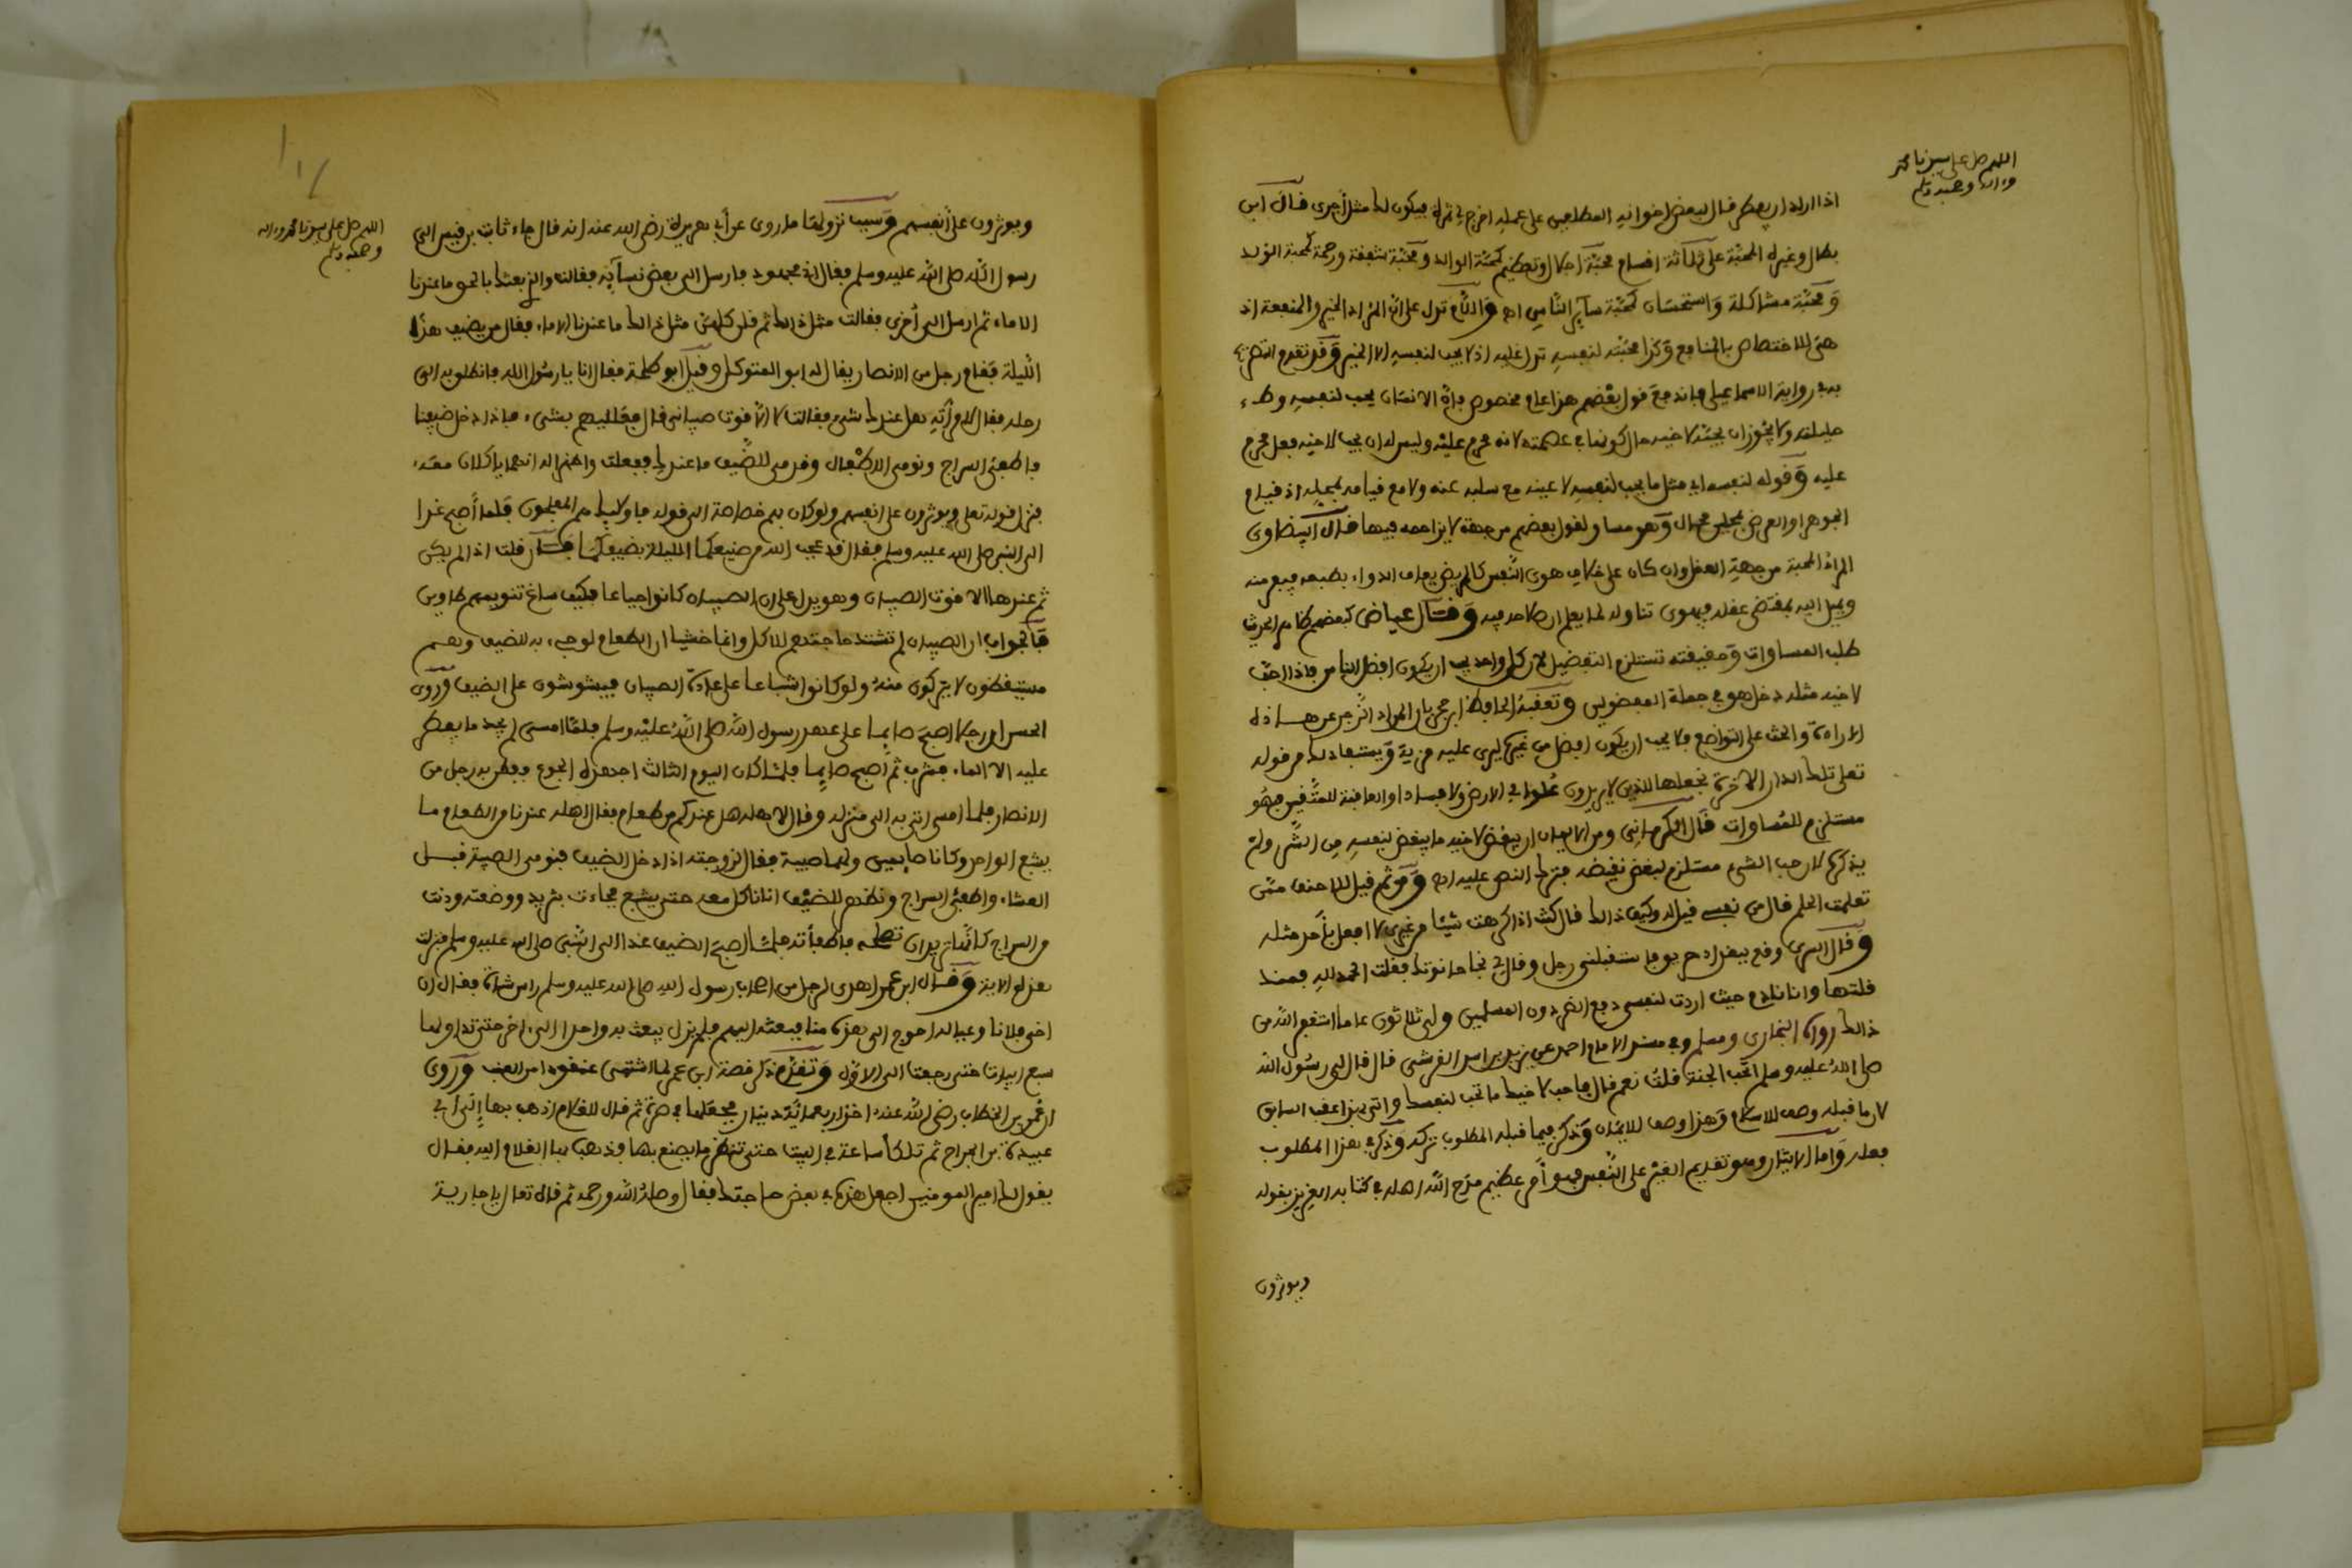 اللهم صل على سيدنا محمد
وءاله وصحبه وسلم
اذا اراد ان يفطر قال لبعض اخوانه المطلعين على عمله اخرج لي تمرة فيكون لك مثل أجري قال ابن
بطال وغيره المحبة على ثلاثة اقسام محبة اجلال وتعظيم كمحبة الوالد ومحبة شفقة ورحمة كمحبة الولد
ومحبة مشاكلة واستحسان كمحبة سآير الناس اه والكلام تدل على ان المراد الخير والمنفعة اذ
هي للاختصاص بالمنافع وكذا محبته لنفسه تدل عليه اذ لا يحب لنفسه الا الخير وقد تقدم التصريح
به في رواية الاسماعيلي فاندفع قول بعضهم هذا عام مخصوص فإن الانسان يحب لنفسه وطء
حليلته ولا يجوز ان يحبه لاخيه حال كونها في عصمته لانه محرم عليه وليس له ان يحب لاخيه فعل محرم
عليه وقوله لنفسه اي مثل ما يحب لنفسه لا عينه مع سلبه عنه ولا مع قيامه بمحله اذ قيام
الجوهر او العرض بمحلين محال وهو مساو لقول بعضهم من جهة لا يزاحمه فيها قال البيضاوي
المراد المحبة من جهة العقل وان كان على خلاف هوى النفس كالمريض يعاف الدواء بطبعه فينفر منه
ويميل اليه بمقتضى عقله فيهوى تناوله لما يعلم ان صلاحه فيه وقال عياض كبعضهم ظاهر الحديث
طلب المساوات وحقيقته تستلزم التفضيل لان كل واحد يحب ان يكون افضل الناس فاذا احب
لاخيه مثله دخل هو في جملة المفضولين وتعقبه الحافظ ابن حجر بان المراد الزجر عن هذه
الارادة والحث على التواضع فلا يحب ان يكون افضل من غيره ليرى عليه مزية ويستفاد ذلك من قوله
تعلى تلك الدار الاخرة نجعلها للذين لا يريدون علوا في الارض ولا فسادا والعاقبة للمتقين فهو
مستلزم للمساوات قال الكرماني ومن الايمان ان يبغض لاخيه ما يبغض لنفسه من الشر ولم
يذكره لان حب الشيء مستلزم لبغض نقيضه فترك النص عليه اه ومن ثم قيل للاحنف ممن
تعلمت الحلم قال من نفسي قيل له وكيف ذالك قال كنت اذا كرهت شيئا من غيري لا افعل بأحد مثله
وقال السري وقع ببغداد حريق فاستقبلني رجل وقال لي نجا حانوتك فقلت الحمد لله فمنذ
قلتها وانا نادم حيث اردت لنفسي دفع الضر دون المسلمين ولي ثلاثون عاما استغفر الله من
ذالك رواه البخاري ومسلم وفي مسند الامام احمد عن يزيد بن اسد القرشي قال قال لي رسول الله
صلى الله عليه وسلم اتحب الجنة قلت نعم قال فاحب لاخيك ما تحب لنفسك واتى بهذا عقب السابق
لان ما قبله وصف للاسلام وهذا وصف للايمان وذكر فيما قبله المطلوب تركه وذكر في هذا المطلوب
فعله وأما الايثار وهو تقديم الغير على النفس فهو أمر عظيم مدح الله اهله في كتابه العزيز بقوله
ويوثرون
اللهم صل على سيدنا محمد وءاله
وصحبه وسلم
ويوثرون على أنفسهم وسبب نزولها ما روى عن أبي هريرة رضي الله عنه انه قال جاء ثابت بن قيس الى
رسول الله صلى الله عليه وسلم فقال اني مجهود فارسل الى بعض نسآيه فقالت والذي بعثك بالحق ما عندنا
الا ماء ثم ارسل الى أخرى فقالت مثل ذالك ثم قلن كلهن مثل ذالك ما عندنا الا ماء فقال من يضيف هذا
الليلة فقام رجل من الانصار يقال له ابو المتوكل وقيل أبو طلحة فقال انا يا رسول الله فانطلق به الى
رحله فقال لامرأته هل عندك شيء فقالت لا الا قوت صبياني قال فعلليهم بشيء فاذا دخل ضيفنا
فاطفئي السراج ونومي الاطفال وقدمي للضيف ما عندك ففعلت واظهرا له انهما ياكلان معه
فنزل قوله تعلى ويوثرون على انفسهم ولو كان بهم خصاصة الى قوله فاولائك هم المفلحون فلما أصبح غدا
الى النبي صلى الله عليه وسلم فقال قد عجب الله من صنيعكما الليلة بضيفكما فان قلت اذا لم يكن
ثم عندها الا قوت الصبيان وهو يدل على ان الصبيان كانوا جياعا فكيف ساغ تنويمهم طاوين
فالجواب ان الصبيان لم تشتد حاجتهم للاكل وانما خشيا ان الطعام لو جيء به للضيف وهم
مستيقظون لا يتركون منه ولو كانوا شباعا على عادة الصبيان فيشوشون على الضيف وروى
الحسن ان رجلا اصبح صايما على عهد رسول الله صلى الله عليه وسلم فلما امسى لم يجد ما يفطر
عليه الا الماء فشرب ثم أصبح صايما فلما كان اليوم الثالث اجهده الجوع ففطن به رجل من
الانصار فلما امسى اتى به الى منزله وقال لاهله هل عندكم من طعام فقال اهله عندنا من الطعام ما
يشبع الواحد وكانا صايمين ولهما صبية فقال لزوجته اذا دخل الضيف فنومي الصبية قبل
العشاء واطفئي السراج ونظهر للضيف اننا ناكل معه حتى يشبع فجاءت بثريد ووضعته ودنت
من السراج كأنها تريد ان تصلحه فاطفأته فلما اصبح الضيف غدا الى النبي صلى الله عليه وسلم فنزلت
هذه الاية وقال ابن عمر اهدي لرجل من اصحاب رسول الله صلى الله عليه وسلم راس شاة فقال ان
اخي فلانا وعياله احوج الى هذه منا فبعثه اليهم فلم يزل يبعث به واحد الى اخر حتى تداولها
سبع ابيات حتى رجعت الى الاول وتقدم ذكر قصة ابن عمر لما اشتهى عنقودا من العنب وروى
ان عمر بن الخطاب رضي الله عنه اخذ اربعمائة دينار فجعلها في صرة ثم قال للغلام اذهب بها إلى أبي
عبيدة بن الجراح ثم تلكأ ساعة في البيت حتى تنظر ما يصنع بها فذهب بها الغلام اليه فقال
يقول لك امير المومنين اجعل هذه في بعض حاجتك فقال وصله الله ورحمه ثم قال تعالي يا جارية